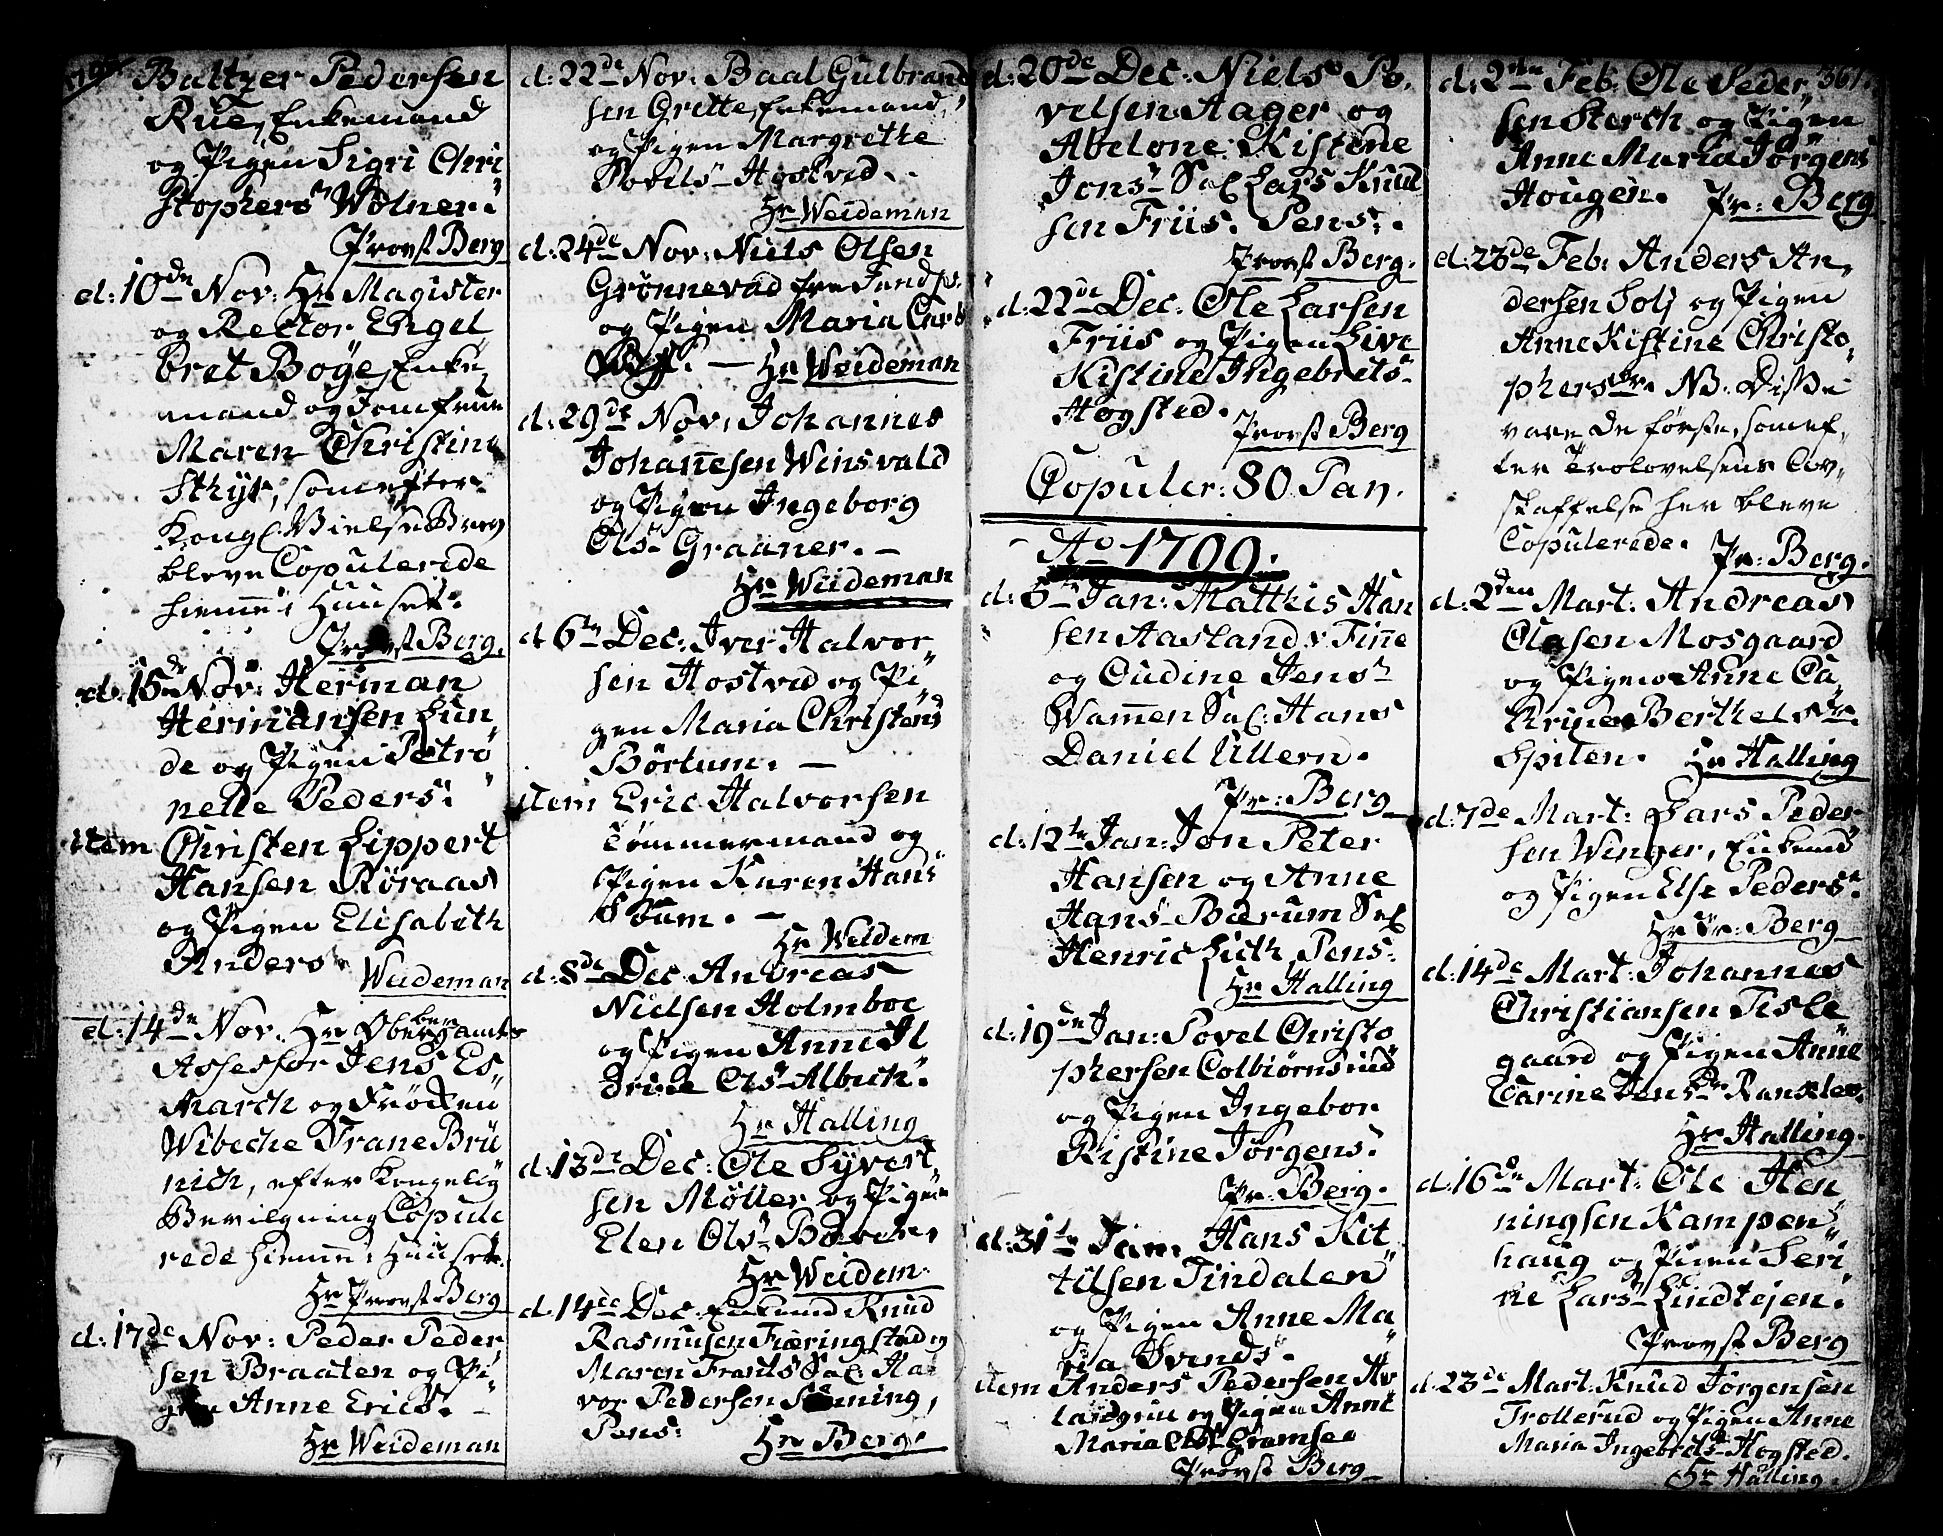 Baltzer Pedersen
Rue, Enkemand
og Pigen Sigri Chri
stophers Wolner:
Provst Berg
d: 10de Nov: Hr Magister
og Rector Engel
bret Boye, Enke,,
mand og Jomfrue
Maren Christine
som efter
Kongl:
bleve Copulerede
hiemme i Huuset.
Provst Berg.
d: 15de Nov: Herman
Hermansen Lun
de og Pigen Petro
nelle Peders:
item Christen Lippert
Hansen Røraas
og Pigen Elisabeth
Anders
Weideman
d: 14de Nov. Hr Oberbergamts
Assessor Jens Es,,
march og Frøcken
Wibeche Frane Brü
nich, efter Kongelig
Bevilgning Copule
rede hiemme i Huuset.
Hr Provst Berg
d: 17de Nov: Peder Peder,,
sen Braaten og Pi,,
gen Anne Erics. -
Hr Weideman
d: 22de Nov: Baal Gulbrand
sen Grette, Enkemand,
og Pigen Margrethe
Povels- Hostved.
Hr Weideman
d: 24de Nov: Niels Olsen
Grønnevad
og Pigen Maria
Hr Weideman
d: 29de Nov: Johannes
Johannesen Winsvald
og Pigen Ingeborg
Ols- Graaner. -
Hr Weideman
d 6te Dec: Iver Halvor,,
sen Hostved og Pi,,
gen Maria Christens
Börtum. -
item Eric Halvorsen
Tømmermand og
Pigen Karen Hans
Hr Weidem
d: 8de Dec: Andreas
Nielsen Holmboe
og Pigen Anne
Ols- Albech.
Hr Halling
d: 13de Dec: Ole Syvert,,
sen Møller og Pigen
Elen Ols-
Hr Weidem.
d: 14de Dec: Enkemd Knud
Rasmusen Fiæringstad og
Maren Frants Sal: Ha
vor Pedersen
Pens:
Hr Berg.
d: 20de Dec: Niels Po,,
velsen Hager og
Abelone Kistine
Jons- Sal Lars Knud
sen Friis. Pens:
Provst Berg.
d: 22de Dec: Ole Larsen
Friis og Pigen Live
Kistine Ingebrets-
Hogsted.
Provst Berg
Copuler: 80 Par.
Ao 1799.
d: 5te Jan: Matthis Han
sen Aasland Finne
og Gudine Jens
Wammen Sal: Hans
Daniel Ullern.
Pr: Berg
d: 12te Jan: Jon Peter
Hansen og Anne
Hans- Bærum Sal
Henric Lieth Pens:
Hr Halling
d: 19de Jan: Povel Christo
phersen Colbiørnsrud
og Pigen Ingebor
Kistine Jørgens.
Pr: Berg.
d: 31te Jan. Hans Kit
tilsen Tindalen
og Pigen Anne Ma
ria Svends.
item Anders Pedersen
og Pigen Anne
Maria
Provst Berg
361.
d: 2den Feb: Ole Peder
sen Storch og Pigen
Anne Maria Jørgens
Hougen. Pr: Berg
d: 23de Feb: Anders An,,
dersen Solj og Pigen
Anne Kistine Christo,,
phersdr. NB. Disse
vare de første, som ef,,
ter Trolovelsens Aov,,
skaffelse her bleve
Copulerede. Pr: Berg.
d: 2den Mart: Andreas
Olasen Mosgaard
og Pigen Anne Ca
trine Berthelsdr.
Spiten. Hr Halling
d: 7de Mart: Lars Peder
sen Winger, Enkemd
og Pigen Else Peders.
Hr Pr: Berg
d: 14de Mart: Johannes
Christiansen Tisle
gaard og Pigen Anne
Carine Jensdr
Hr Halling.
d: 16de Mart: Ole Hen,,
ningsen Kampen
haug og Pigen Seri
ne Lars- Lindtejen.
Provst Berg
d: 23de Mart: Knud Jørgensen
Trollerud og Pigen Anne
Maria Ingebrets- Hogsted.
Hr Halling.